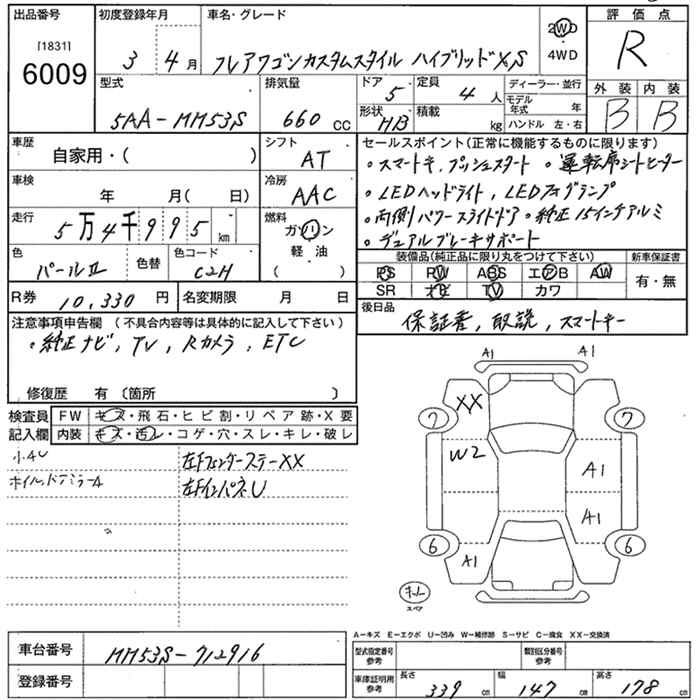 出品番号
[1831]
6009
初度登録年月
3 年 4 月
車名・グレード
フレアワゴンカスタムスタイル ハイブリッドXS
2WD
・
4WD
評価点
R
外装 内装
B B
型式
5AA-MM53S
排気量
660 CC
ドア 5
定員 4 人
形状 HB
積載 kg
ディーラー・並行
モデル年式 年
ハンドル 左・右
車歴
自家用・( )
シフト
AT
車検
年 月( 日)
冷房
AAC
走行
5万4千995 km
燃料
ガソリン
軽油
( )
色
パールII
色替
色コード
C2H
R券 10,330 円
名変期限 月 日
セールスポイント(正常に機能するものに限ります)
・スマートキ,プッシュスタート ・運転席シートヒーター
・LEDヘッドライト,LEDフォグランプ
・両側パワースライドドア・純正15インチアルミ
・デュアルブレーキサポート
装備品(純正品に限り丸をつけて下さい)
PS PW ABS エアB AW
SR ナビ TV カワ
新車保証書
有・無
後日品
保証書,取説,スマートキー
注意事項申告欄 (不具合内容等は具体的に記入して下さい)
・純正ナビ,TV,Rカメラ,ETC
修復歴 有 (箇所 )
検査員記入欄
FW キズ・飛石・ヒビ割・リペア跡・X要
内装 キズ・汚レ・コゲ・穴・スレ・キレ・破レ
小4U
左Fフェンダーステー XX
左FインパネU
A1 A1
XX
7 7
W2
A1
A1
6 6
A1
スペア
A-キズ E-エクボ U-凹み W-補修跡 S-サビ C-腐食 XX-交換済
車台番号
MM53S-712916
登録番号
型式指定番号 参考
類別区分番号 参考
車庫証明用 参考
長さ 339 cm
幅 147 cm
高さ 178 cm